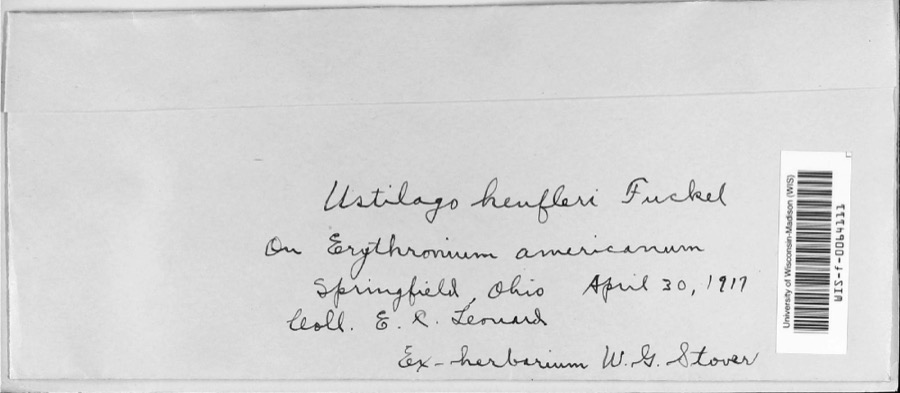 Ustilago heufleri Fuckel
On Erythronium americanum
Springfield, Ohio April 30, 1917
Coll. E. C. Leonard
Ex-herbarium W. G. Stover
University of Wisconsin-Madison (WIS)
WIS-f-0064111